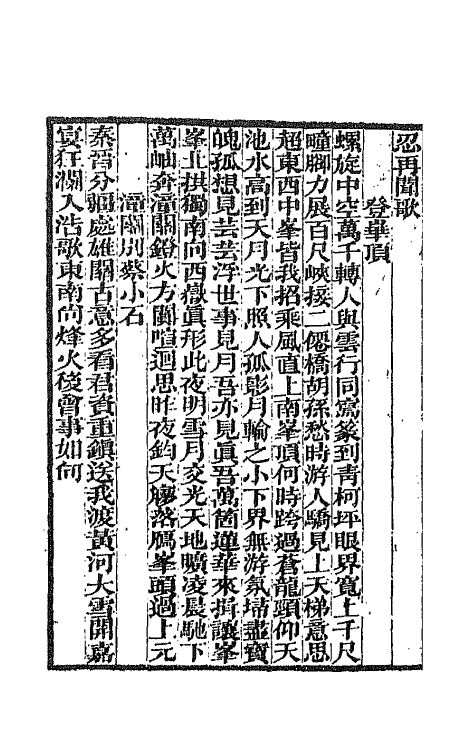 忍再聞歌
登華頂
螺旋中空萬千轉人與雲行同寫篆到靑柯坪眼界寬上千尺
㠉腳力展百尺峽接二僊橋胡孫愁時游人驕見上天梯意思
超東西中峯皆我招乘風直上南峯頂何時跨過蒼龍頭仰天
池水高到天月光下照人孤影月輪之小下界無游氛埽盡寶
魄孤想見芸芸浮世事見月吾亦見眞吾萬箇蓮華來揖讓峯
峯工拱獨南向西嶽眞形此夜明雪月交光天地曠凌晨馳下
萬岫奔潼關鐙火方闐喧迴思昨夜鈞天寥落鴈峯頭過上元
潼關別蔡小石
秦晉分疆處雄關古意多看君資重鎭送我渡黃河大雪開嘉
宴狂瀾入浩歌東南尚烽火後會事如何